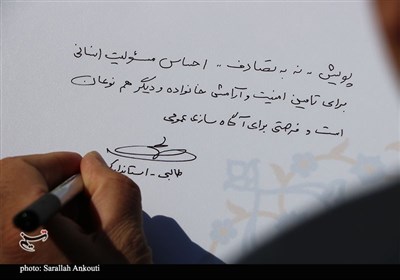 پویش .. نه به تصادف .. احساس مسئولیت انسانی
برای تامین امنیت و آرامش خانواده و دیگر هم نوعان
است و فرصتی برای آگاه سازی عمومی
طالبی - استاندار
تسنیم
photo: Sarallah Ankouti